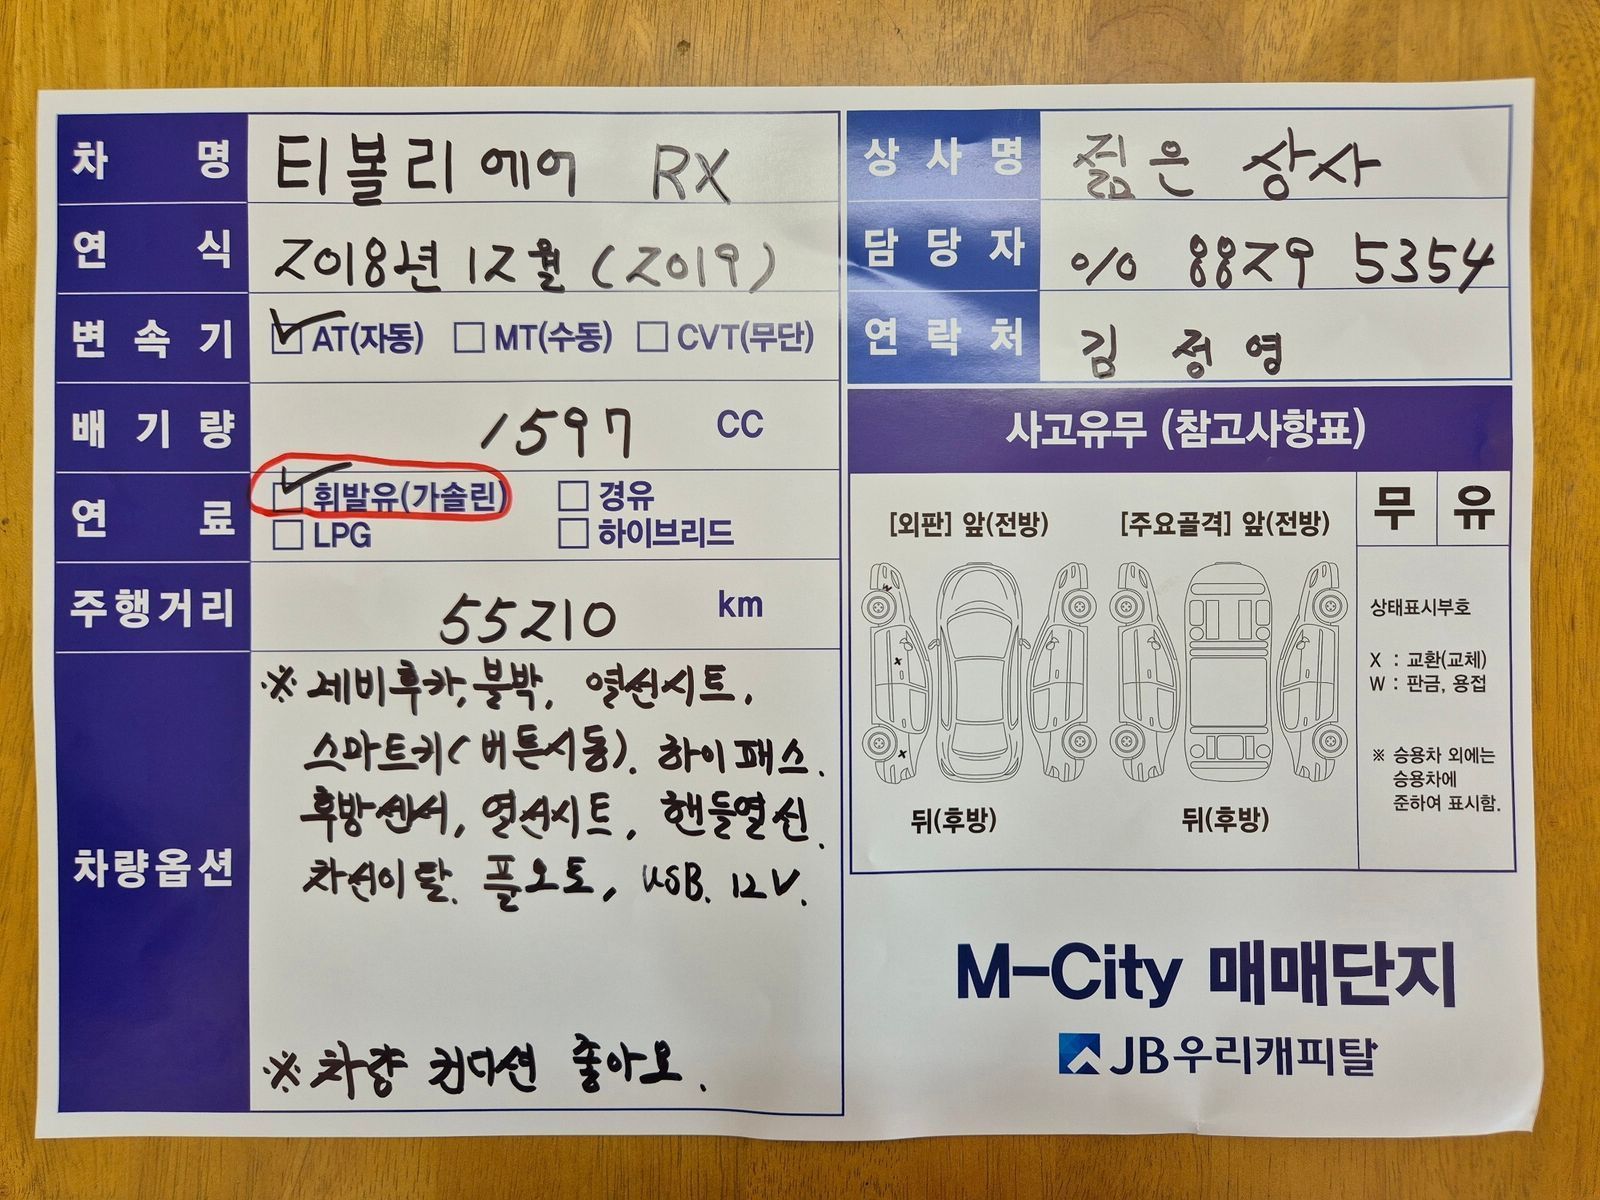 차 명 티볼리 에어 RX
연 식 2018년 12월 (2019)
변 속 기 AT(자동) MT(수동) CVT(무단)
배 기 량 1597 CC
연 료 휘발유(가솔린) 경유
LPG 하이브리드
주행거리 55210 km
차량옵션
※ 네비후카, 블박, 열선시트.
스마트키(버튼시동). 하이패스.
후방센서, 열선시트, 핸들열선.
차선이탈. 풀오토, USB. 12V.
※ 차량 컨디션 좋아요.
상 사 명 젊은 상사
담 당 자 010 8829 5354
연 락 처 김 정 영
사고유무 (참고사항표)
[외판] 앞(전방) [주요골격] 앞(전방) 무 유
W
x
x
뒤(후방) 뒤(후방)
상태표시부호
X : 교환(교체)
W : 판금, 용접
※ 승용차 외에는
승용차에
준하여 표시함.
M-City 매매단지
JB우리캐피탈